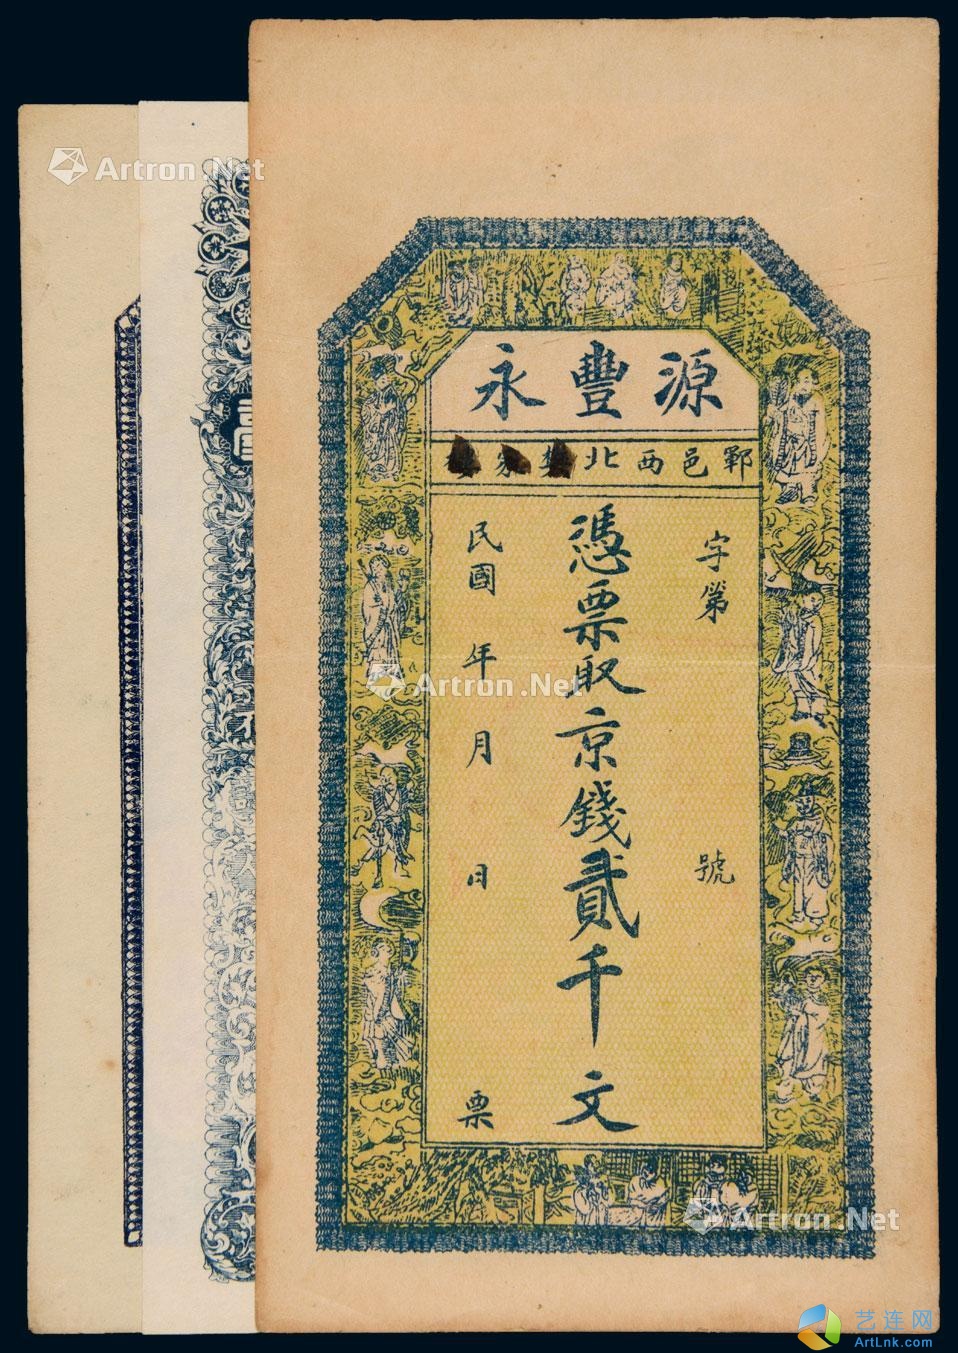 源豐永
鄆邑西北
字第 號
憑票取京錢貳千文
民國 年 月 日 票
Artron.Net
Artron.Net
Artron.Net
艺连网
ArtLnk.com